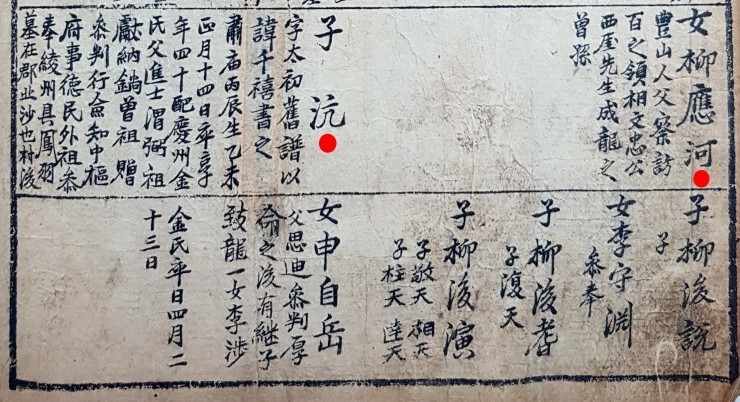 女柳應河
豊山人父察訪
百之領相文忠公
西厓先生成龍之
曾孫
子沆
字太初舊譜以
諱千禧書之
肅庙丙辰生乙未
正月十四日卒享
年四十配慶州金
氏父進士渭弼祖
獻納鍋曾祖贈
參判行僉知中樞
府事德民外祖參
奉綾州具鳳羽
墓在郡北沙也村後
子柳後說
子
女李守淵
參奉
子柳後耆
子復天
子柳後演
子敬天 相天
子柱天 天
女申自岳
父思迪參判厚
命之後有継子
致龍一女李涉
金氏卒日四月二
十三日